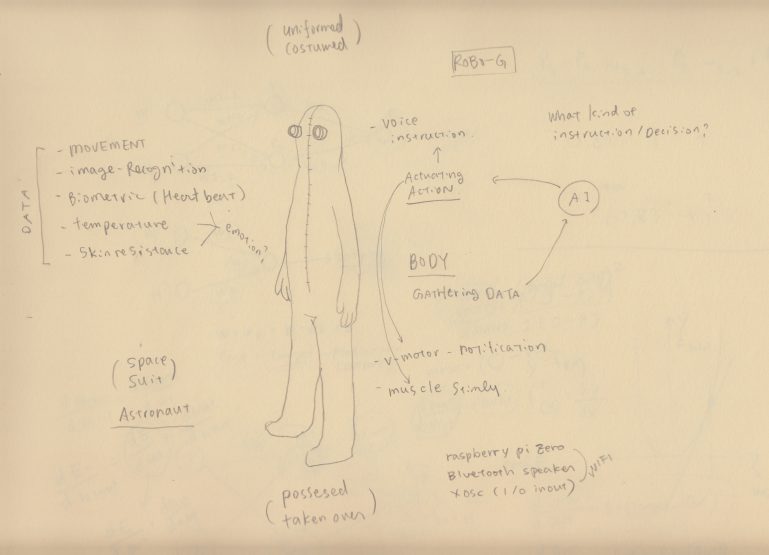 (uniformed
costumed)
ROBO-G
DATA
- MOVEMENT
- image-Recognition
- Biometric (Heartbeat)
- temperature
- Skin resistance
emotion?
- voice
instruction.
Actuating
ACTION
What kind of
instruction/Decision?
A.I
BODY
GATHERING DATA
- v-motor - notification
- muscle
(Space
Suit)
Astronaut
(possesed
taken over)
raspberry pi Zero
Bluetooth speaker
XOSC (I/O inout)
WIFI